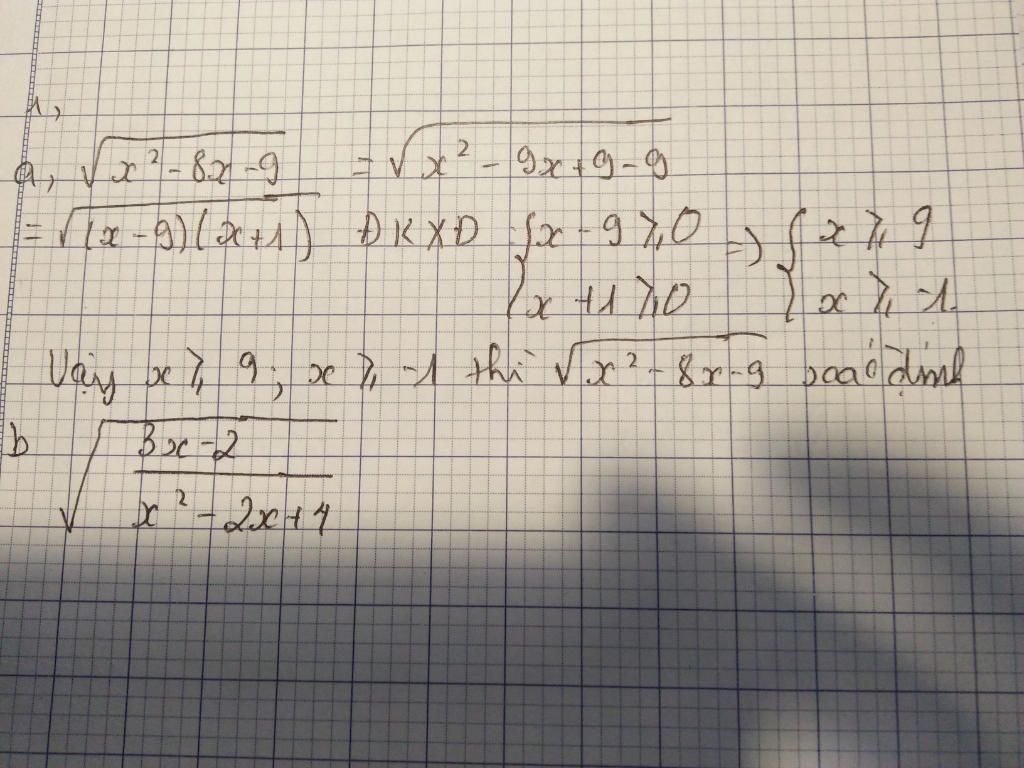 1,
a, √(x² - 8x - 9) = √(x² - 9x + 9 - 9)
= √((x - 9)(x + 1)) ĐKXD {x - 9 ⩾ 0 => {x ⩾ 9
{x + 1 ⩾ 0 {x ⩾ -1.
Vậy x ⩾ 9; x ⩾ -1 thì √(x² - 8x - 9) định
b √((3x - 2)/(x² - 2x + 4))